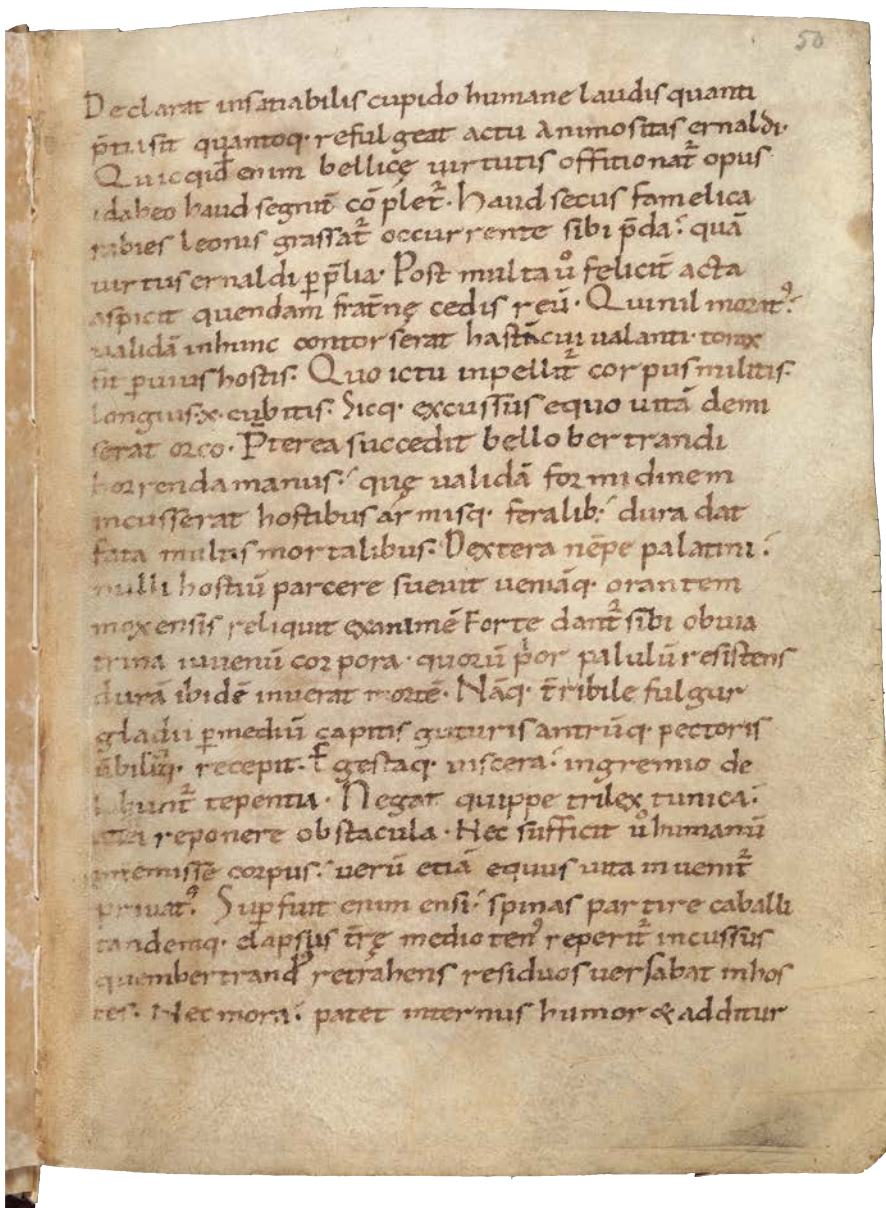 50
Declarat insatiabilis cupido humane laudis quanti
p̄tii sit quantoq· refulgeat actu animositas ernaldi·
Quicqid enim bellicę uirtutis offitio nat᷑ opus
id ab eo haud segnit̄ cōplet᷑· Haud secus famelica
rabies leonis grassat᷑ occurrente sibi p̄da؛ quā
uirtus ernaldi ꝑ p̄lia· Post multa ů felicit̄ acta
aspicit quendam frat̄nę cedis reū· Qui nil morat᾽؛
ualidā in hunc contorserat hastā cui ualanti torax
fit ꝑuius hostis· Quo ictu inpellit᷑ corpus militis
longius·x·cubitis· Sicq· excussus equo uitā demi
serat orco· P̄terea succedit bello bertrandi
horrenda manus؛ quę ualidā formidinem
incusserat hostibus armisq· feralib؛ dura dat
fata multis mortalibus· Dextera nēpe palatini؛
nulli hostiū parcere sueuit ueniāq· orantem
mox ensis reliquit exanimē Forte dant᷑ sibi obuia
trina iuuenū corpora· quorū p̍or palulū resistens
durā ibidē inuerat mortē· Nāq· t̄ribile fulgur
gladii ꝑ mediū capitis guturis antrūq· pectoris
ūbiliq· recepit· Egestaq· uiscera؛ in gremio de
labunt᷑ tepentia· Negat quippe trilex tunica؛
reponere obstacula· Nec sufficit ů humanū
intemisse corpus؛ uerū etiā equus uita inuenit᷑
priuat᾽؛ Suꝑfuit enim ensi؛ spinas partire caballi
tandemq· elapsus t̄rę medioten᾽ reperit᷑ incussus
quem bertrand᾽ retrahens residuos uersabat in hos
tes· Nec mora؛ patet internus humor & additur